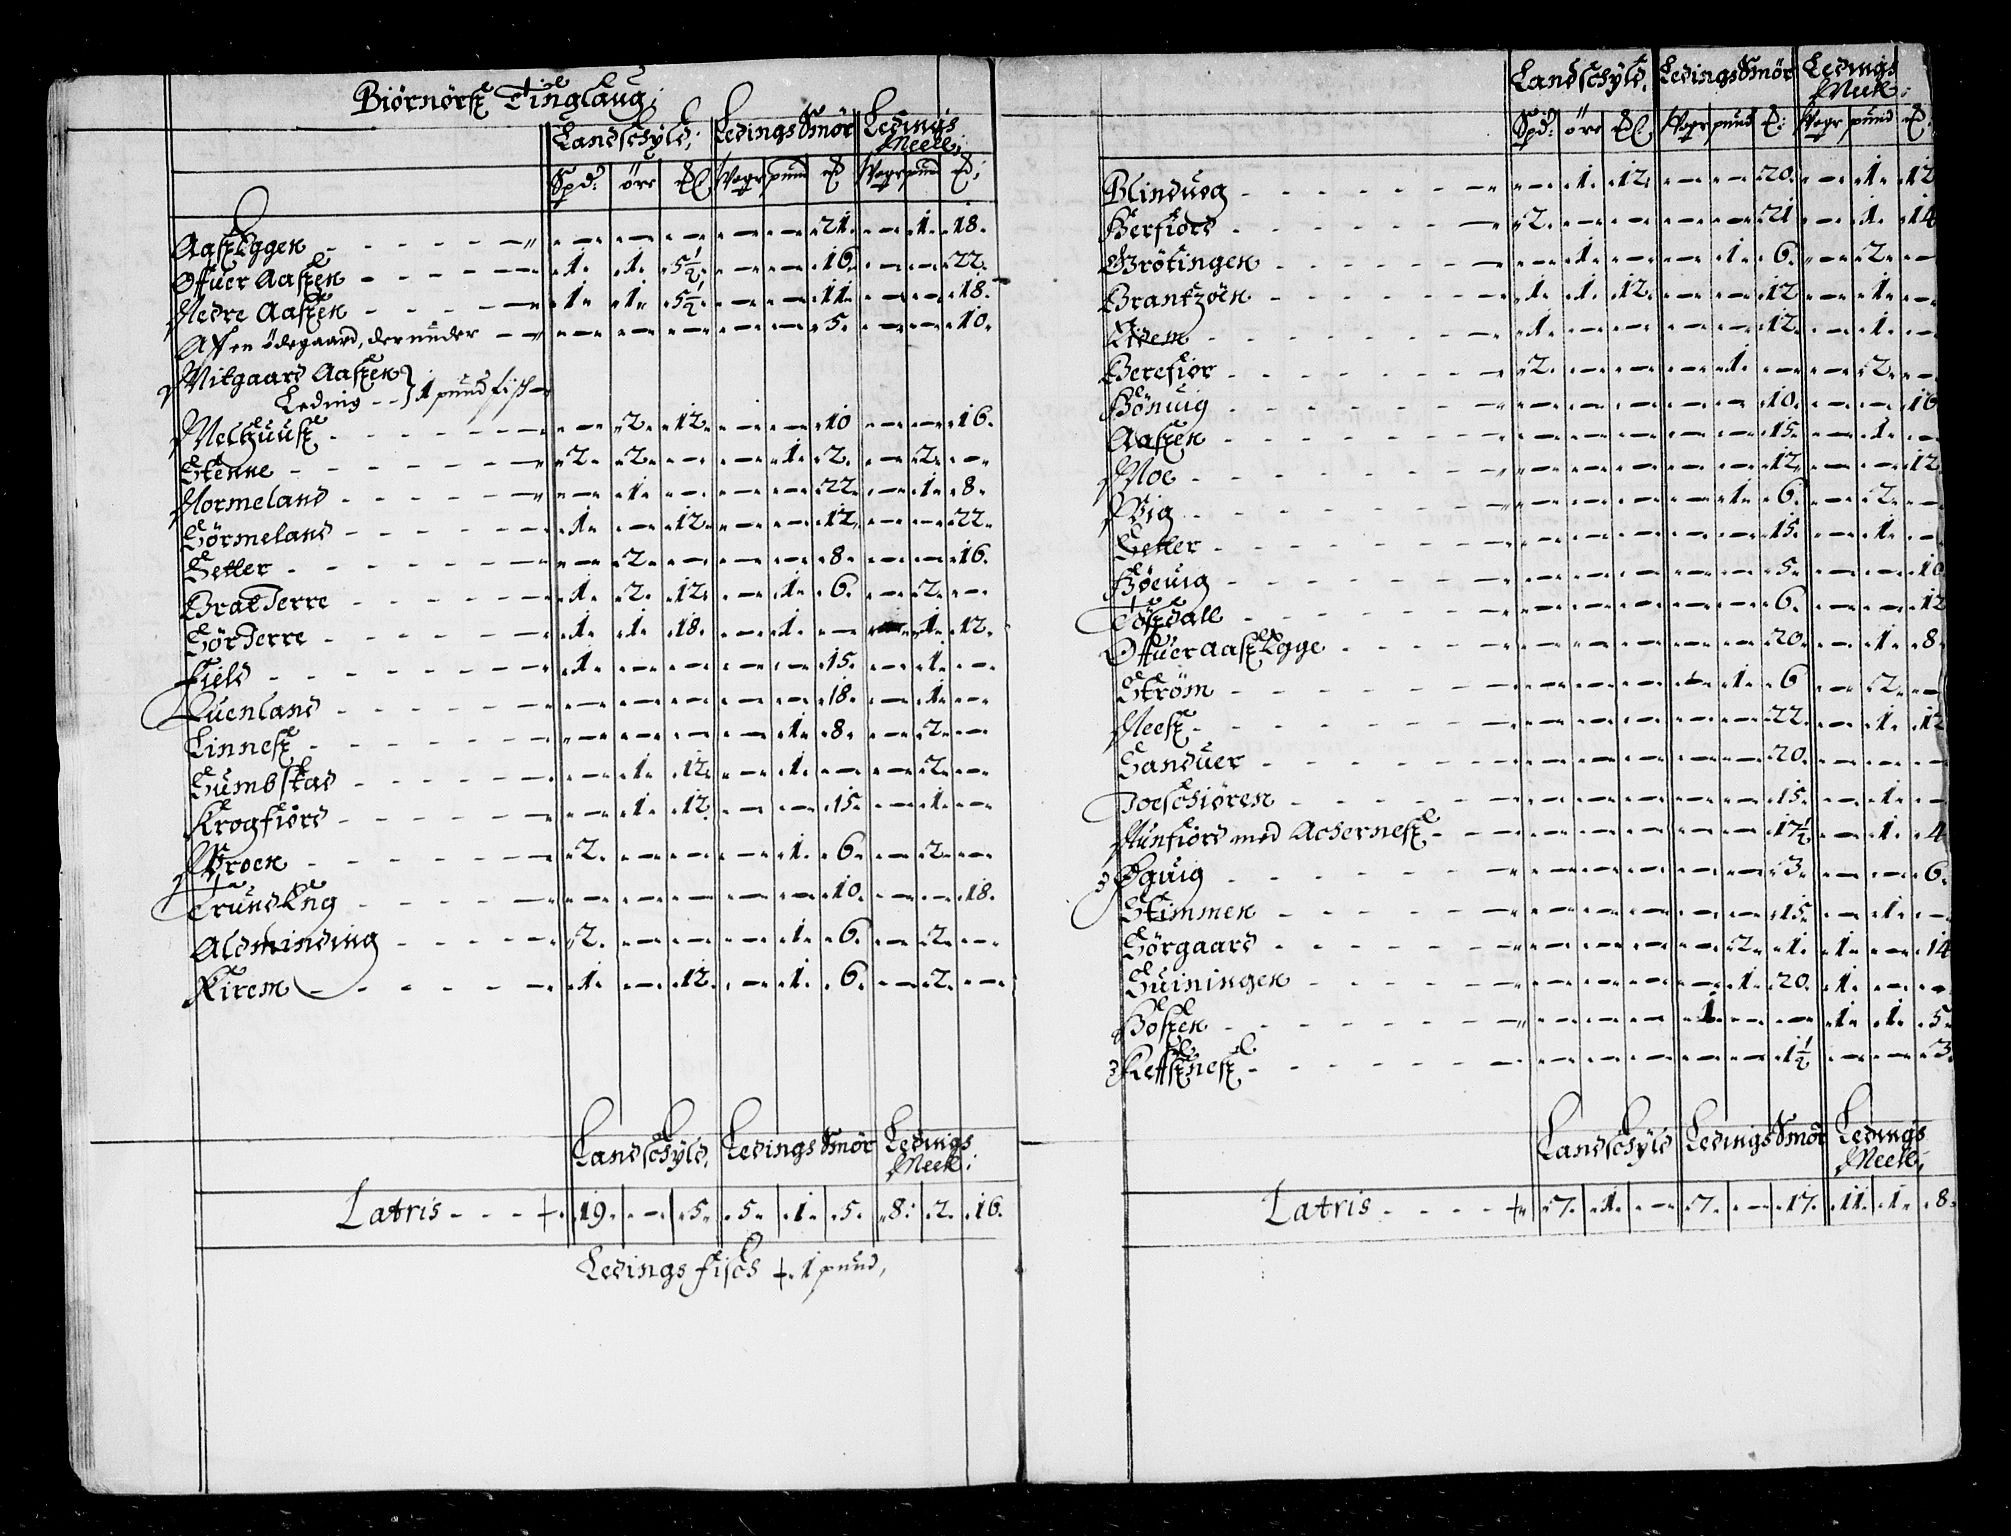 Biørnørſz Tinglaug;
Landſchyld; Ledings Smör Ledings
Meell;
Spd: öre Wogr pund Wogr pund
Aaſz Eggen - - - - - - - - - - - 21. - 1. 18.
Offuer Aaſzen - - - - 1. 1. 5½. - - 16. - - 22.
Nedre Aaſzen - - - - 1. 1. 5½. - - 11. - - 18.
Aff en ödegaard, der under - - - - - - - 5. - - 10.
Mitgaard Aaſzen
Leding - - } 1 pund fisch -
Melhuuſz - - - - - 2. 12. - - 10 - - 16.
Stenne - - - - 2. 2. - - 1. 2. - 2. -
Normeland - - - - - 1. - - - 22. - 1. 8.
Sörmeland - - - - 1. - 12. - - 12. - - 22.
Setter - - - - - 2. - - - 8. - - 16.
Brat Jerre - - - - 1. 2. 12. - 1. 6. - 2. -
Sör Jerre - - - - 1. 1. 18. - 1. - - 1. 12.
Field - - - - 1. - - - - 15. - 1. -
Quenland - - - - - - - - - 18. - 1. -
Linneſz - - - - - - - - 1. 8. - 2. -
Sumbſtad - - - - - 1. 12. - 1. - - 2. -
Krogfiord - - - - - 1. 12. - - 15. - 1. -
Wroen - - - - 2. - - - 1. 6. - 2. -
Trund Eng - - - - - - - - - 10. - - 18.
Aldminding - - - - 2. - - - 1. 6. - 2. -
Kirem - - - - 1. - 12. - 1. 6. - 2. -
Landſchyld. Ledings Smör Ledings
Meell;
Latris - - - 19. - 5. 5. 1. 5. 8. 2. 16.
Ledings fiſch 1 pund,
Landſchyld. Ledings Smör Ledings
Meell;
Spd: öre Wogr pund Wogr pund
Blindueg - - - - - 1. 12. - - 20. - 1. 12
Berfiord - - - - 2. - - - - 21. - 1. 14
Grötingen - - - - - 1. - - 1. 6. - 2. -
Brantzöen - - - - 1. 1. 12. - - 12. - 1. -
Edem - - - - 1. - - - - 12. - 1. -
Berefior - - - - 2. - - - 1. - - 2. -
Hönuig - - - - - - - - - 10. - - 16
Aaſzen - - - - - - - - - 15. - 1. -
Moe - - - - - - - - - 12. - - 12
Wig - - - - - - - - 1. 6. - 2. -
Setter - - - - - - - - - 15. - 1. -
Höeuig - - - - - - - - - 5. - - 10
Töſzdall - - - - - - - - - 6. - - 12
Offuer Aaſz Egge - - - - - - - - - 20. - 1. 8.
Ström - - - - - - - - 1. 6 - 2. -
Neeſz - - - - - - - - - 22. - 1. 12
Sanduer - - - - - - - - - 20. - - -
Joeſchiören - - - - - - - - - 15. - 1. -
Nunfiord med Acherneſz - - - - - - - 17½ - 1. 4
Ogvig - - - - - - - - - 3. - - 6.
Stimmen - - - - - - - - - 15. - 1. -
Sörgaard - - - - - - - - 2. 1. 1. - 14
Suiningen - - - - - - - - 1. 20. 1. - -
Hoſzen - - - - - - - 1. - - 1. 1. 5.
Kefſzneſz - - - - - - - - - 1½ - - 3.
Landſchyld Ledings Smör Ledings
Meell;
Latris - - - - 7. 1. - 7. - 17. 11. 1. 8.